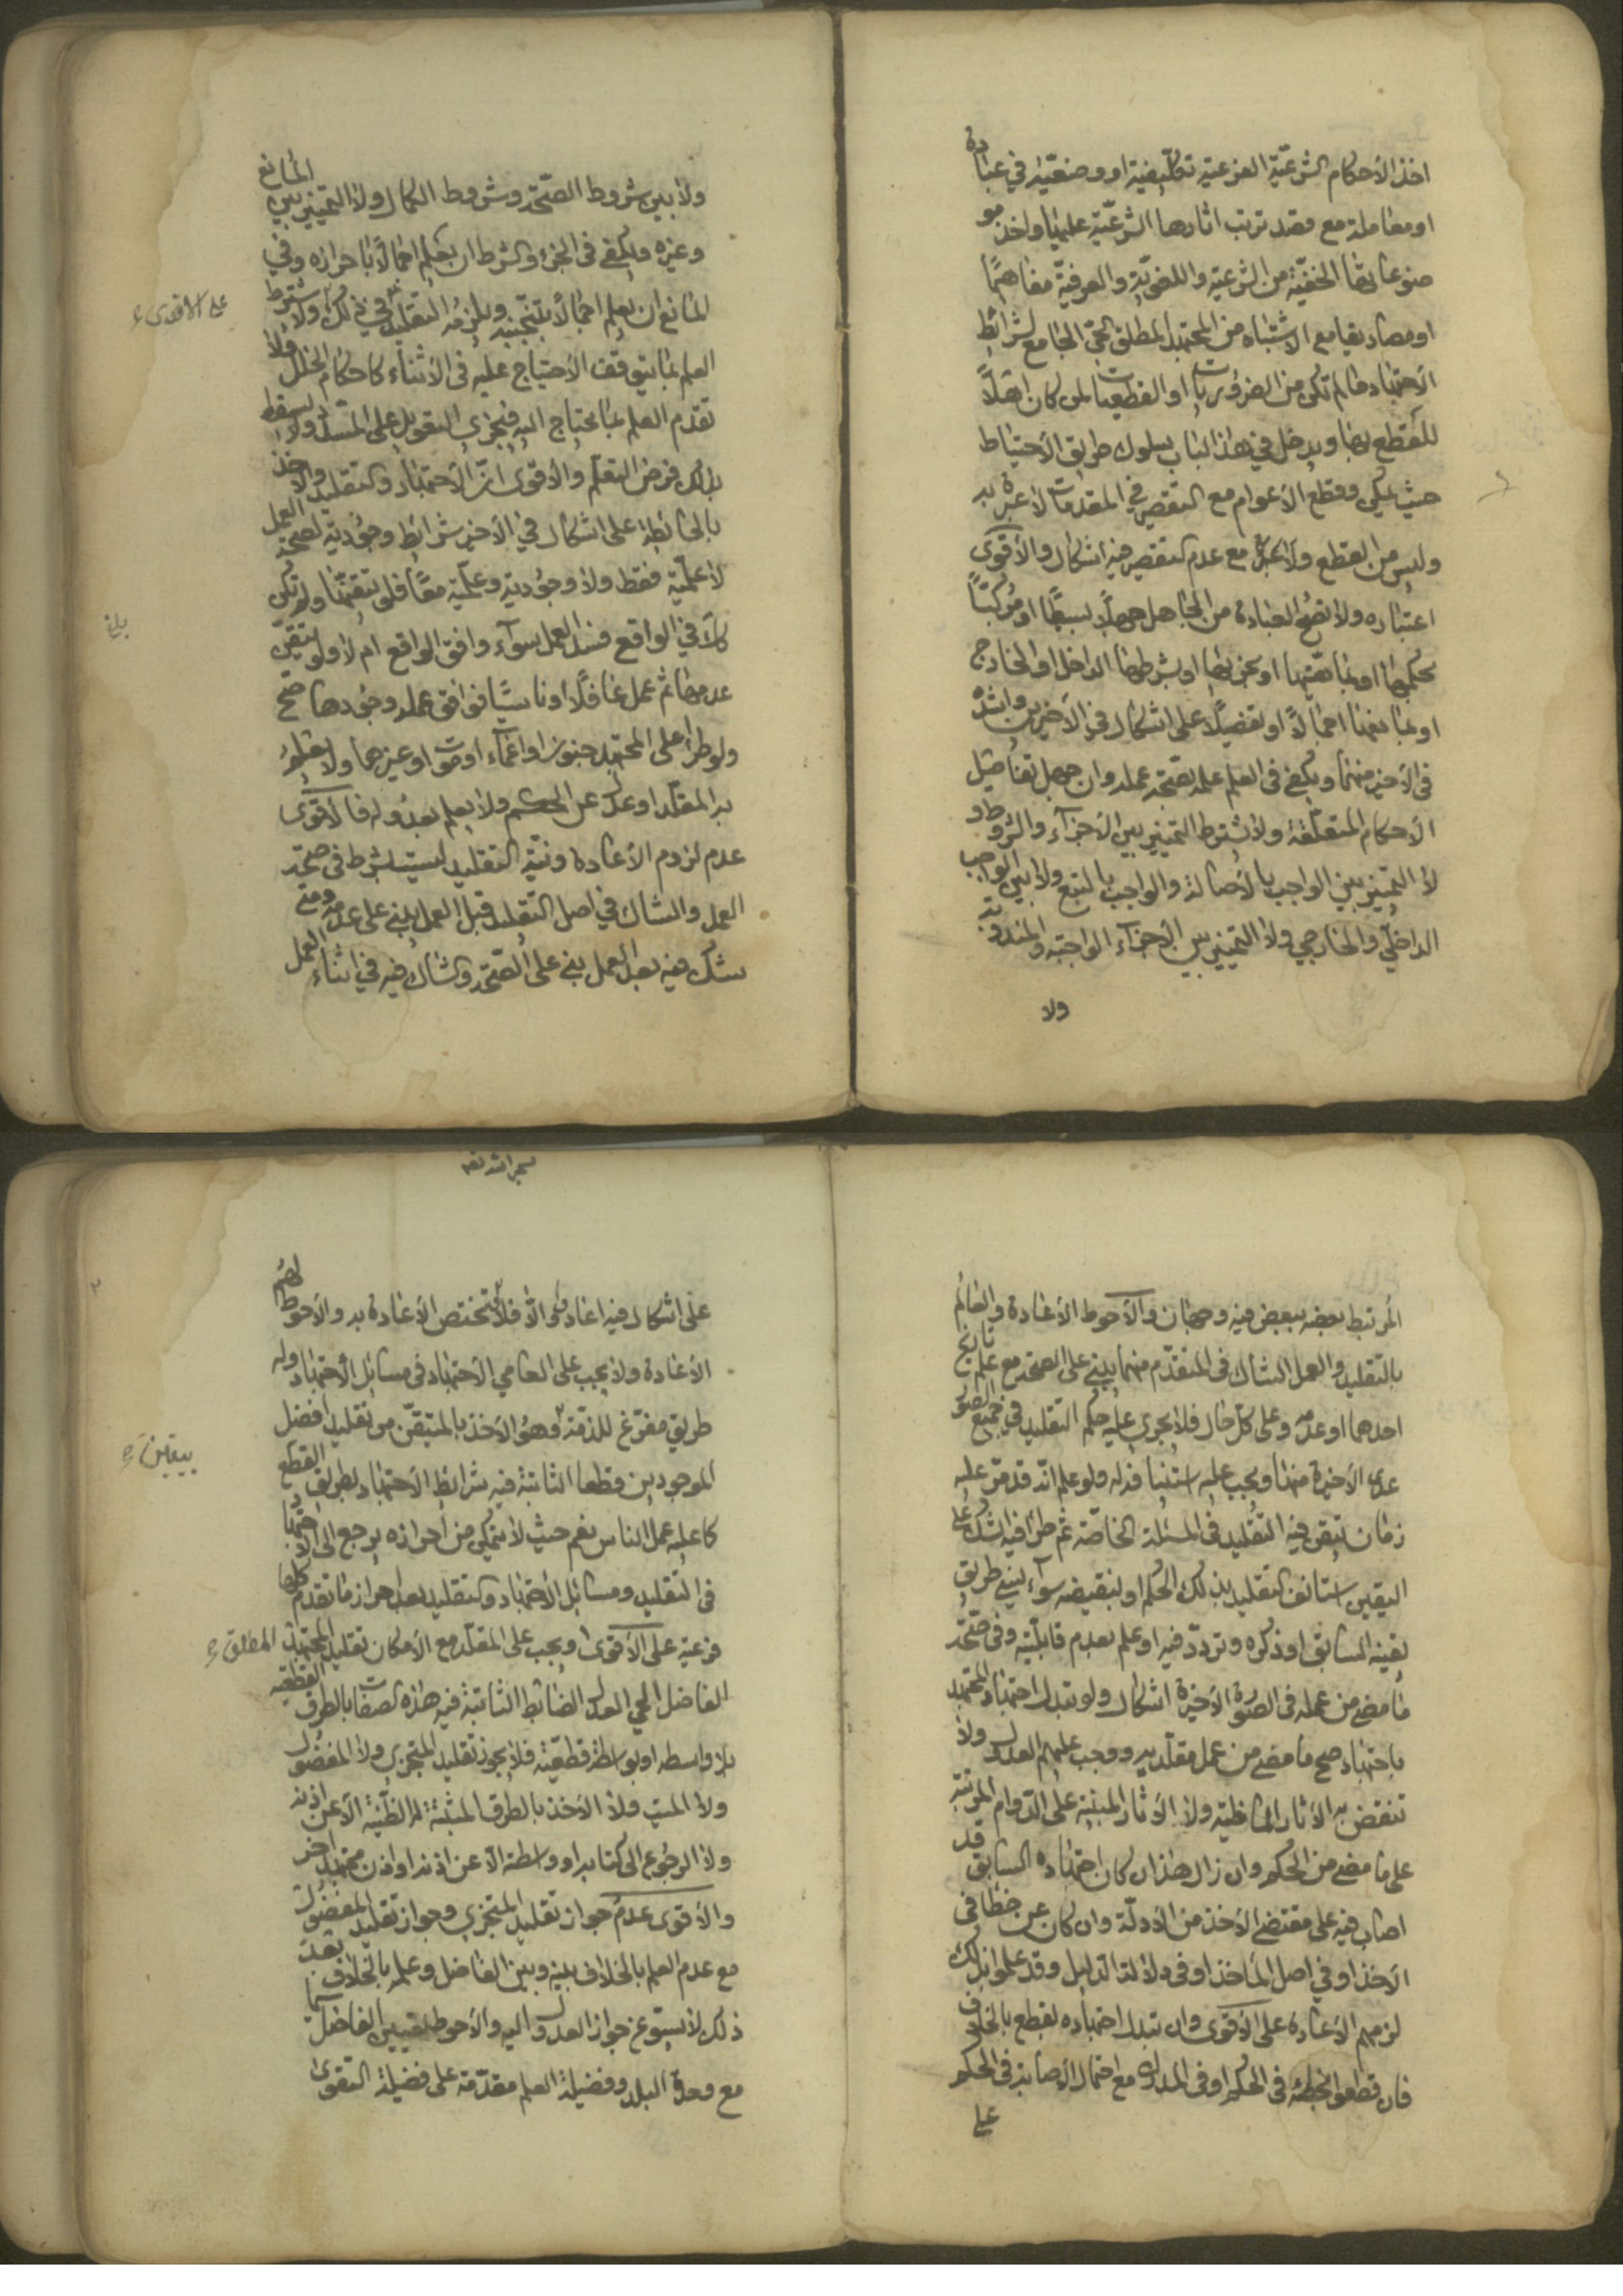 اخذ الأحكام الشرعيّة الفرعيّة تكليفيّة او وضعيّة في عبادة
او معاملة مع قصد ترتب اثارها الشرعيّة عليها واخذ
موضوعاتها الخفيّة من الشرعيّة واللغويّة والعرفيّة مفاهيمًا
او مصاديقا مع الاشتباه من المجتهد المطلق الحيّ الجامع لشرائط
الأجتهاد ما لم تكن من الضروريات او القطعيات لمن كان اهلاً
للقطع بها ويدخل في هذا الباب سلوك طريق الأحتياط
حيث يمكن وقطع الأعوام مع التقصير في المقدمات لا عبرة به
وليس من القطع ولا عبرة مع عدم التقصير فيه اشكال والأقوى
اعتباره ولا تصحّ العبادة من الجاهل جهلاً بسيطًا او مركبًا
بحكمها او بماهيّتها او بجزئها او بشرطها الداخل او الخارج
او بمانعها اجمالاً او تفصيلاً على اشكال في الأخيرين واشدّه
في الأخير منهما ويكفي في العلم علمه بصحّة عمله وان جهل تفاصيل
الأحكام المتعلّقة ولا يشترط التمييز بين الأجزاء والشروط و
لا التمييز بين الواجب بالأصالة والواجب بالتبع ولا بين الواجب
الداخلي والخارجي ولا التمييز بين الأجزاء الواجبة والمندوبة
ولا
ولا بين شروط الصّحّة وشروط الكمال ولا التمييز بين المانع
وغيره ويكفي في الجزء والشرط ان يعلم اجمالاً باحرازه وفي
المانع ان يعلم اجمالاً بتجنّبه ويلزمه التقليد في ذلك ولا يشترط
على الاقوى
العلم بما يتوقف الأحتياج عليه في الأثناء كاحكام الخلل ولا
تقدّم العلم بما يحتاج اليه فيجزي التعويل على المسدّد ولا يسقط
بذلك فرض التعلّم والأقوى انّ الأجتهاد والتقليد والأخذ
بالحائطة على اشكال في الأخير شرائط وجوديّة لصحّة العمل
لا علميّة فقط ولا وجوديّة وعلميّة معًا فلو تيقّنها ولم تكن
بلغ
كذلك في الواقع فسد العمل سوآء وافق الواقع ام لا ولو تيقّن
عدمها ثم عمل غافلاً او ناسيًا فوافق عمله وجودها صحّ
ولو طرأ على المجتهد جنون او اغمآء او موت او غيرها ولا يعلم
به المقلّد او عدل عن الحكم ولا يعلم بعدوله فالأقوى
عدم لزوم الأعادة ونيّة التقليد ليست بشرط في صحّة
العمل والشاك في اصل التقليد قبل العمل يبني على عدمه ومتى
شك فيه بعد العمل بنى على الصّحّة والشاك فيه في اثناء العمل
المرتبط بعضه ببعض فيه وجهان والأحوط الأعادة والعالم
بالتقليد والعمل الشاك في المتقدّم منهما يبني على الصحّة مع علم تاريخ
احدهما او عدمه وعلى كلّ حال فلا يجري عليه حكم التقليد في جميع الصور
عدى الأخيرة منها ويجب عليه استئنافه له ولو علم انّه قد مرّ عليه
زمان تيقن فيه التقليد في المسئلة الخاصّة ثم طرأ فيه الشك على
اليقين استانف التقليد بذلك الحكم او بنقيضه سوآء نسي طريق
يقينه السابق او ذكره وتردّد فيه او علم بعدم قابليّته وفي صحّة
ما مضى من عمله في الصورة الأخيرة اشكال ولو تبدل اجتهاد المجتهد
باجتهاد صحّ ما مضى من عمل مقلّديه ووجب عليهم العدول ولا
تنتقض به الأثار الماضية ولا الأثار المبنيّة على الدّوام المرتبة
على ما مضى من الحكم وان زال هذا ان كان اجتهاده السابق قد
اصاب فيه على مقتضى الأخذ من الأدلّة وان كان عن خطأ في
الأخذ او في اصل الماخذ او في دلالة الدليل وقد علموا بذلك
لزمهم الأعادة على الأقوى وان تبدل اجتهاده بقطع بالخلاف
فان قطعوا بخطئه في الحكم او في المدرك مع احتمال الأصابة في الحكم
على
على اشكال فيه اعادوا والاّ فلا تختص الأعادة به والأحوط لهم
الأعادة ولا يجب على العامي الأجتهاد في مسائل الأجتهاد وله
طريق مفرّغ للذمّة وهو الأخذ بالمتيقّن من تقليد افضل
بيقين
الموجودين قطعا الثابتة فيه شرائط الأجتهاد بطريق القطع
كما عليه عمل الناس نعم حيث لا يتمكن من احرازه يرجع الى الاجتهاد
في التقليد ومسائل الأجتهاد والتقليد بعد احراز ما تقدم كلها
فرعية على الأقوى ويجب على المقلّد مع الأمكان تقليد المجتهد المطلق
الفاضل الحي العدل الضابط الثابتة فيه هذه الصفات بالطرق القطعية
بلا واسطه او بواسطة قطعيّة فلا يجوز تقليد المتجزي ولا المفضول
ولا الميت ولا الأخذ بالطرق المثبتة له الظنّية الاّ عن اذنه
ولا الرجوع الى كتابه او واسطة الاّ عن اذنه او اذن مجتهد اخر
والأقوى عدم جواز تقليد المتجزي وجواز تقليد المفضول
مع عدم العلم بالخلاف بينه وبين الفاضل وعلمه بالخلاف بعد
ذلك لا يسوغ جواز العدول اليه والأحوط تعيين الفاضل سيما
مع وحدة البلد وفضيلة العلم مقدّمة على فضيلة التقوى